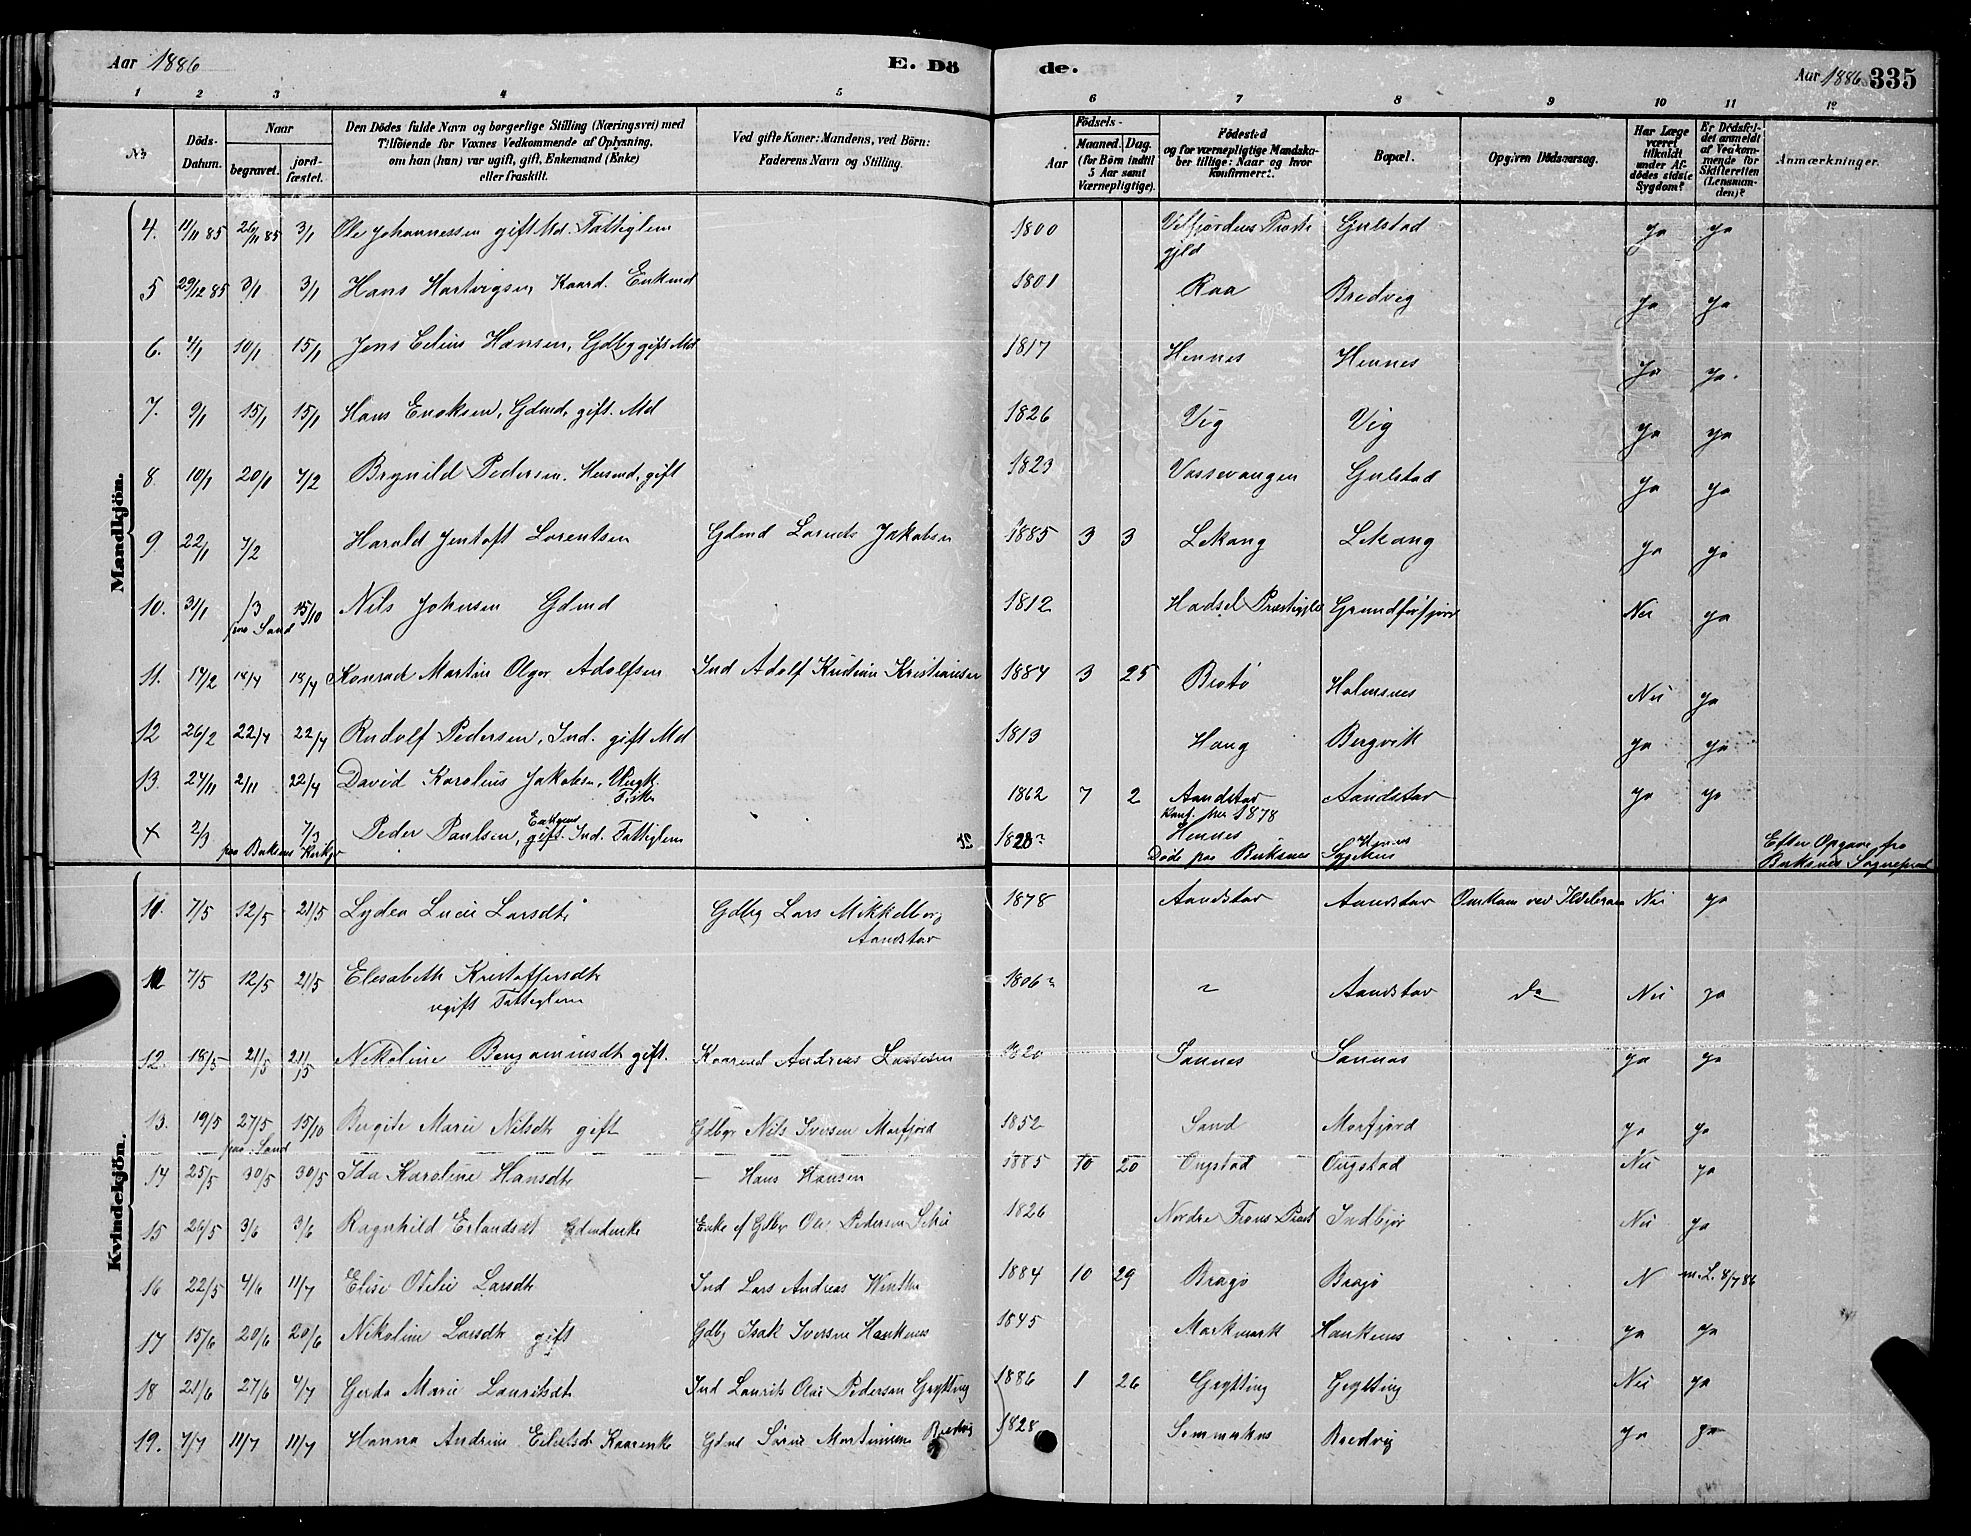 Aar 1886 E. Dö de. Aar 1886 335
1 2 3 4 5 6 7 8 9 10 11 12
No Döds-Datum. Naar begravet. jordfæstet. Den Dödes fulde Navn og borgerlige Stilling (Næringsvei) med Tilföiende for Voxnes Vedkommende af Oplysning, om han (hun) var ugift, gift, Enkemand (Enke) eller fraskilt. Ved gifte Koner: Mandens, ved Börn: Faderens Navn og Stilling. Födsels- Aar Maaned. Dag. (for Börn indtil 5 Aar samt Værnepligtige). Födested og for værnepligtige Mandskaber tillige: Naar og hvor Konfirmeret. Bopæl. Opgiven Dödsaarsag. Har Læge været tilkaldt under Afdödes sidste Sygdom? Er Dödsfaldet anmeldt af Vedkommende for Skifteretten (Lensmanden)? Anmærkninger.
Mandkjön.
4. 11/11 85 26/11 85 3/1 Ole Johannessen gift Md. Fattiglem 1800 Velfjordens Præstegjld Gulstad Ja Ja
5 29/12 85 3/1 3/1 Hans Hartvigsen, Kaard. Enkmd 1801 Raa Bredvig Ja Ja
6. 4/1 10/1 15/1 Jens Edius Hansen, Gdbg gift Md 1817 Hennes Hennes Ja Ja.
7. 9/1 15/1 15/1 Hans Enoksen, Gdmd, gift Md 1826 Vig Vig Ja Ja
8. 10/1 20/1 7/2 Brynild Pedersen. Husmd, gift 1823 Vossevangen Gulstad Ja Ja
9 22/1 7/2 Harald Jentoft Lorentsen Gdmd Lorents Jakobsen 1885 3 3 Lekang Lekang Ja Ja
10. 31/1 /3 paa Sand 15/10 Nils Johnsen Gdmd 1812 Hadsel Præstegjld Grundførfjord Nei Ja
11. 17/2 18/4 18/4 Konrad Martin Olger Adolfsen Ind Adolf Kristian Kristiansen 1884 3 25 Brotø Holmsnes Nei Ja
12 26/2 22/4 22/4 Rudolf Pedersen, Ind. gift Md 1813 Haug Bergvik Ja Ja
13. 24/11 2/11 22/4 David Karolius Jakobsen, Ungk. Fisk 1862 7 2 Aandstar Konf. her 1878 Aandstar Ja Ja
+ 2/3 paa Buksnes Kirkgr 7/3 Peder Paulsen, gift. Ind. Fattiglem 1828 Hennes Døde paa Buksnes Sygehus Efter Opgave fra Buksnes Sognepræst
Kvindekjön.
11. 7/5 12/5 21/5 Lydea Lucie Larsdtr Gdbg Lars Mikkelborg Aandstar 1878 Aandstar Aandstar Omkom ved Ildebran Nei Ja
12 7/5 12/5 21/5 Elesabeth Kristoffersdtr ugift Fattiglem 1806 Aandstar do Nei ja
12. 18/5 21/5 21/5 Nekoline Benjaminsdtr gift. Kaarmd Andreas Larsen 1820 Sannes Sannes ja ja
13. 19/5 27/5 paa Sand 15/10 Bergite Marie Nilsdtr gift Gdbgr Nils Iversen Morfjord 1852 Sand Morfjord ja ja
14 25/5 30/5 30/5 Ida Karoline Hansdtr — Hans Hansen 1885 10 20 Ongstad Ongstad Nei ja
15 26/5 3/6 3/6 Ragnhild Erlandsdt Gdmdenke Enke ef Gdbgr Ole Pedersen 1826 Nordre Frons Præst Indbjør Nei ja
16 22/5 4/6 11/7 Elise Otelie Larsdtr Ind Lars Andreas Winther 1884 10 29 Bragø Bragø N m. L. 8/7 86
17 15/6 20/6 20/6 Nikoline Larsdtr gift Gdbg Isak Iversen Haukenes 1845 Markmark Haukenes ja ja
18 21/6 27/6 4/7 Gerda Marie Lauritsdtr Ind Laurits Olai Pedersen Grytting 1886 1 26 Grytting Grytting Nei ja
19. 4/7 11/7 11/7 Hanna Andrine Eilertsdt Kaarenke Gdmd Søren Mortensen Bredvig 1828 Sommerhus Bredvig ja ja